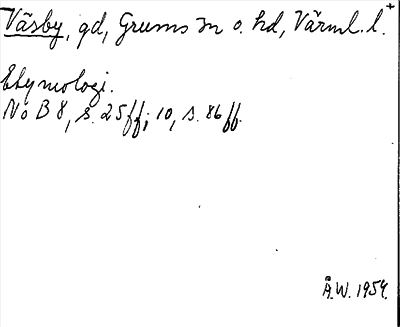 Väsby, gd, Grums sn o. hd, Värml. l. +
Etymologi.
No B 8, s. 25 ff; 10, s. 86 ff.
Å.W. 1959.